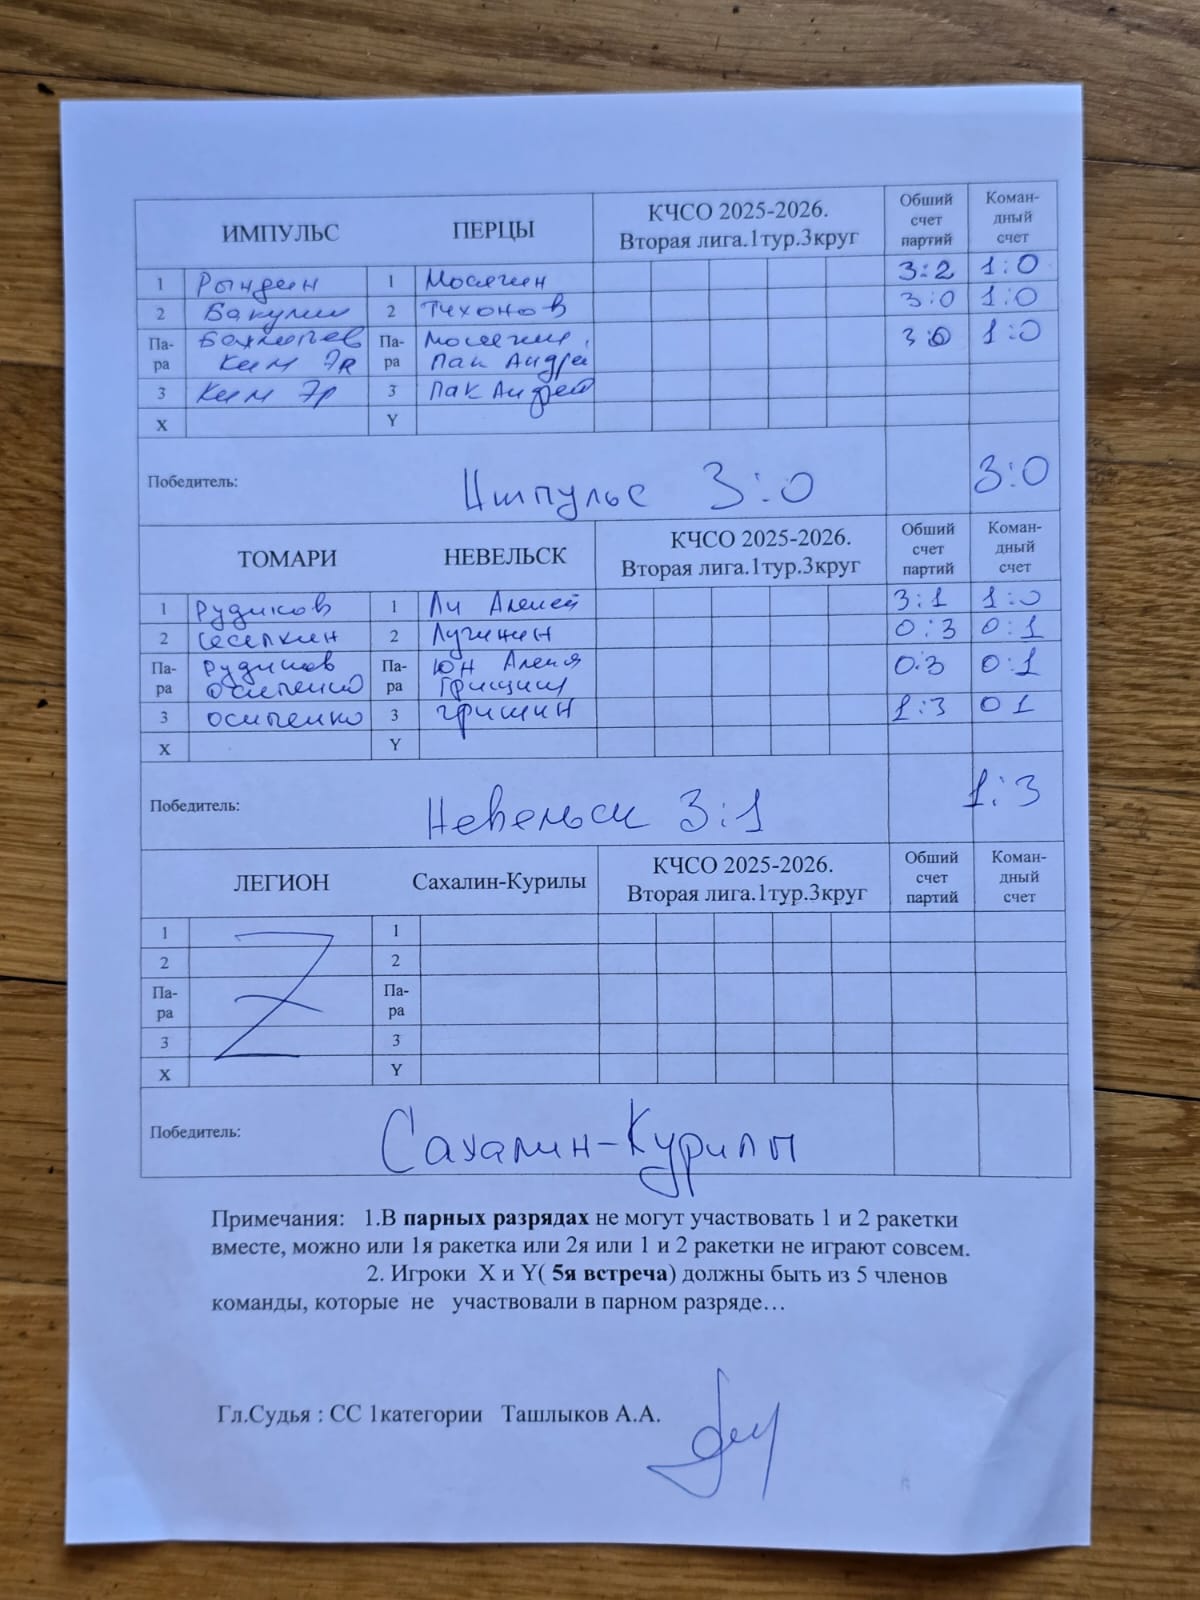 ИМПУЛЬС ПЕРЦЫ КЧСО 2025-2026. Вторая лига.1тур.3круг Обший счет партий Коман-дный счет
1 Рындин 1 Мосягин 3:2 1:0
2 Бакулин 2 Тихонов 3:0 1:0
Па-ра Ким Эр Па-ра Мосягин, Пак Андрей 3:0 1:0
3 Ким Эр 3 Пак Андрей
X Y
Победитель: Импульс 3:0 3:0
ТОМАРИ НЕВЕЛЬСК КЧСО 2025-2026. Вторая лига.1тур.3круг Обший счет партий Коман-дный счет
1 Рудиков 1 Ли Алексей 3:1 1:0
2 2 Лучинин 0:3 0:1
Па-ра Рудиков Осипенко Па-ра Юн Гришин 0:3 0:1
3 Осипенко 3 Гришин 1:3 0 1
X Y
Победитель: Невельск 3:1 1:3
ЛЕГИОН Сахалин-Курилы КЧСО 2025-2026. Вторая лига.1тур.3круг Обший счет партий Коман-дный счет
1 1
2 2
Па-ра Па-ра
3 3
X Y
Победитель: Сахалин-Курилы
Примечания: 1.В парных разрядах не могут участвовать 1 и 2 ракетки
вместе, можно или 1я ракетка или 2я или 1 и 2 ракетки не играют совсем.
2. Игроки X и Y( 5я встреча) должны быть из 5 членов
команды, которые не участвовали в парном разряде…
Гл.Судья : СС 1категории Ташлыков А.А.